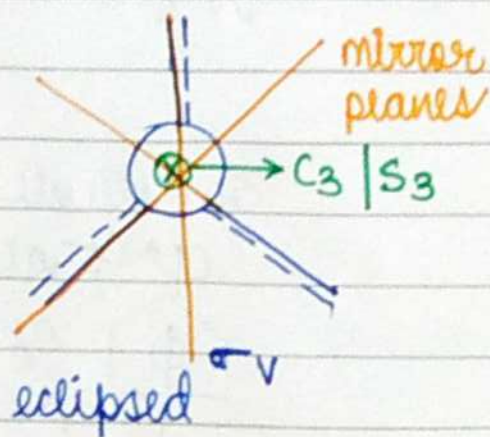 mirror
planes
C3 | S3
σv
eclipsed